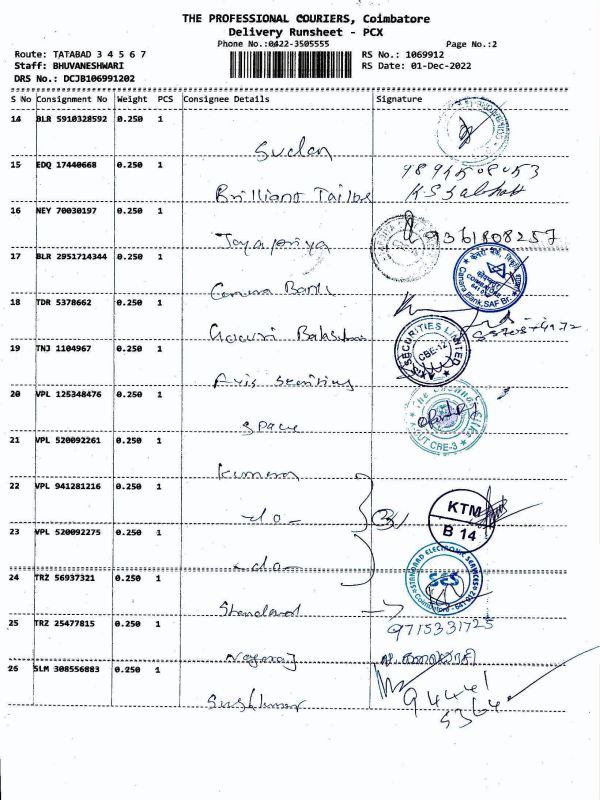 THE PROFESSIONAL COURIERS, Coimbatore
Delivery Runsheet - PCX
Phone No.:0422-3505555 Page No.:2
Route: TATABAD 3 4 5 6 7 RS No.: 1069912
Staff: BHUVANESHWARI RS Date: 01-Dec-2022
DRS No.: DCJB106991202
S No Consignment No Weight PCS Consignee Details Signature
14 BLR 5910328592 0.250 1
Sudan
15 EDQ 17440668 0.250 1
Brilliant
16 NEY 70030197 0.250 1 9361808257
Jayapriya
17 BLR 2951714344 0.250 1
Canara Bank
Canara Bank, SAF Br.
18 TDR 5378662 0.250 1
Gowri
SECURITIES LIMITED
CBE-12
19 TNJ 1104967 0.250 1
Axis Securities
20 VPL 125348476 0.250 1
Space
21 VPL 520092261 0.250 1
22 VPL 941281216 0.250 1
-do-
KTM
B 14
23 VPL 520092275 0.250 1
-do-
24 TRZ 56937321 0.250 1
STANDARD ELECTRONIC SERVICES
SES
Standard
25 TRZ 25477815 0.250 1 9715331725
Nagaraj
26 SLM 308556883 0.250 1
94441
5364